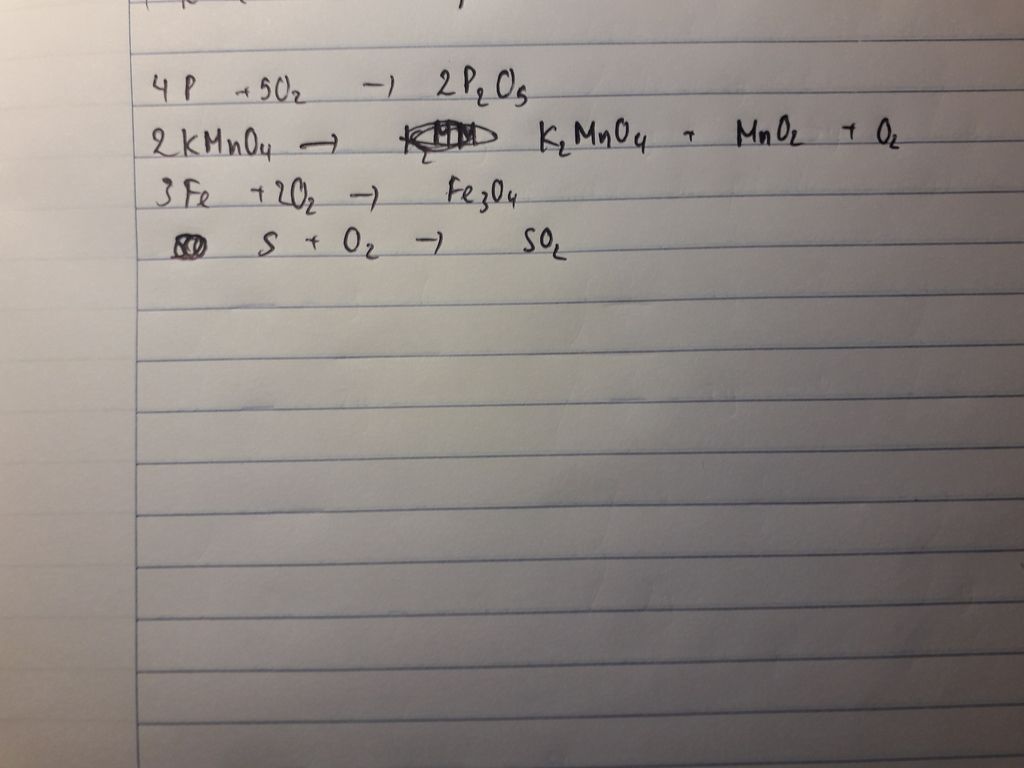 4P +5O₂ → 2P₂O₅
2KMnO₄ → K₂MnO₄ + MnO₂ + O₂
3Fe +2O₂ → Fe₃O₄
S + O₂ → SO₂